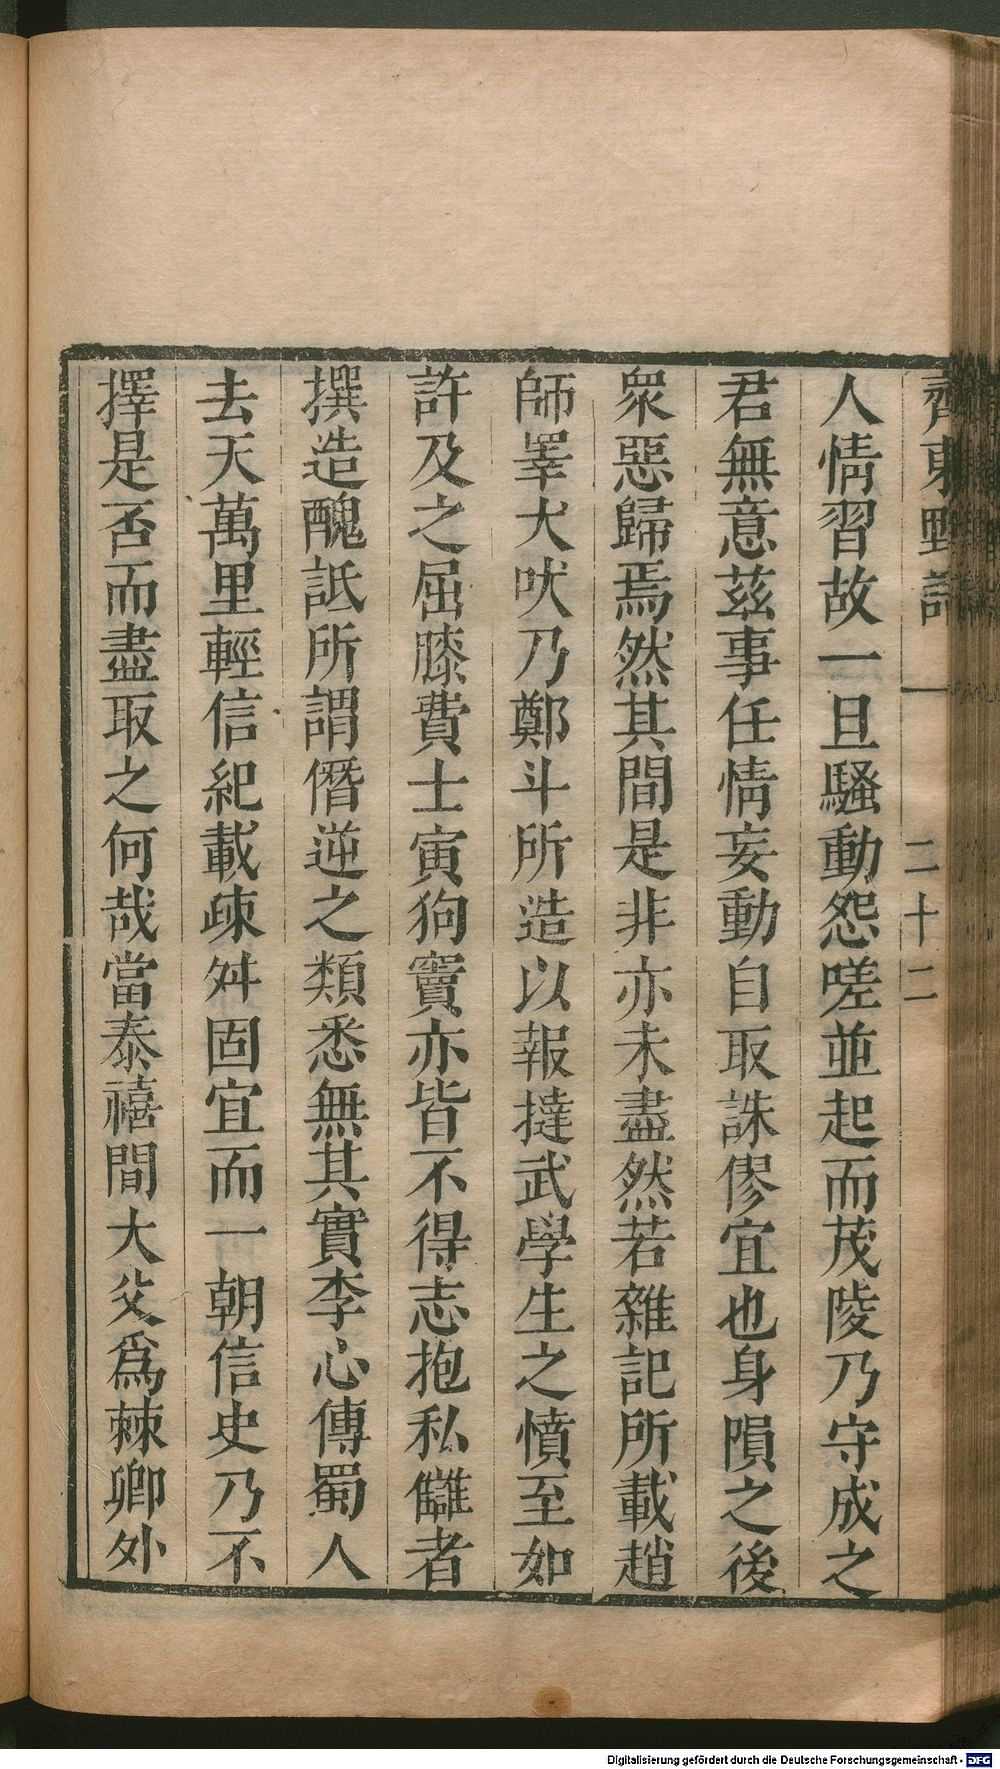 齊東野語 一 二十二
人情習故一旦騷動怨嗟並起而茂陵乃守成之
君無意茲事任情妄動自取誅僇宜也身隕之後
衆惡歸焉然其間是非亦未盡然若雜記所載趙
師睪犬吠乃鄭斗所造以報撻武學生之憤至如
許及之屈膝費士寅狗竇亦皆不得志抱私讎者
撰造醜詆所謂僭逆之類悉無其實李心傳蜀人
去天萬里輕信紀載疎舛固宜而一朝信史乃不
擇是否而盡取之何哉當泰禧間大父爲棘卿外
Digitalisierung gefördert durch die Deutsche Forschungsgemeinschaft - DFG